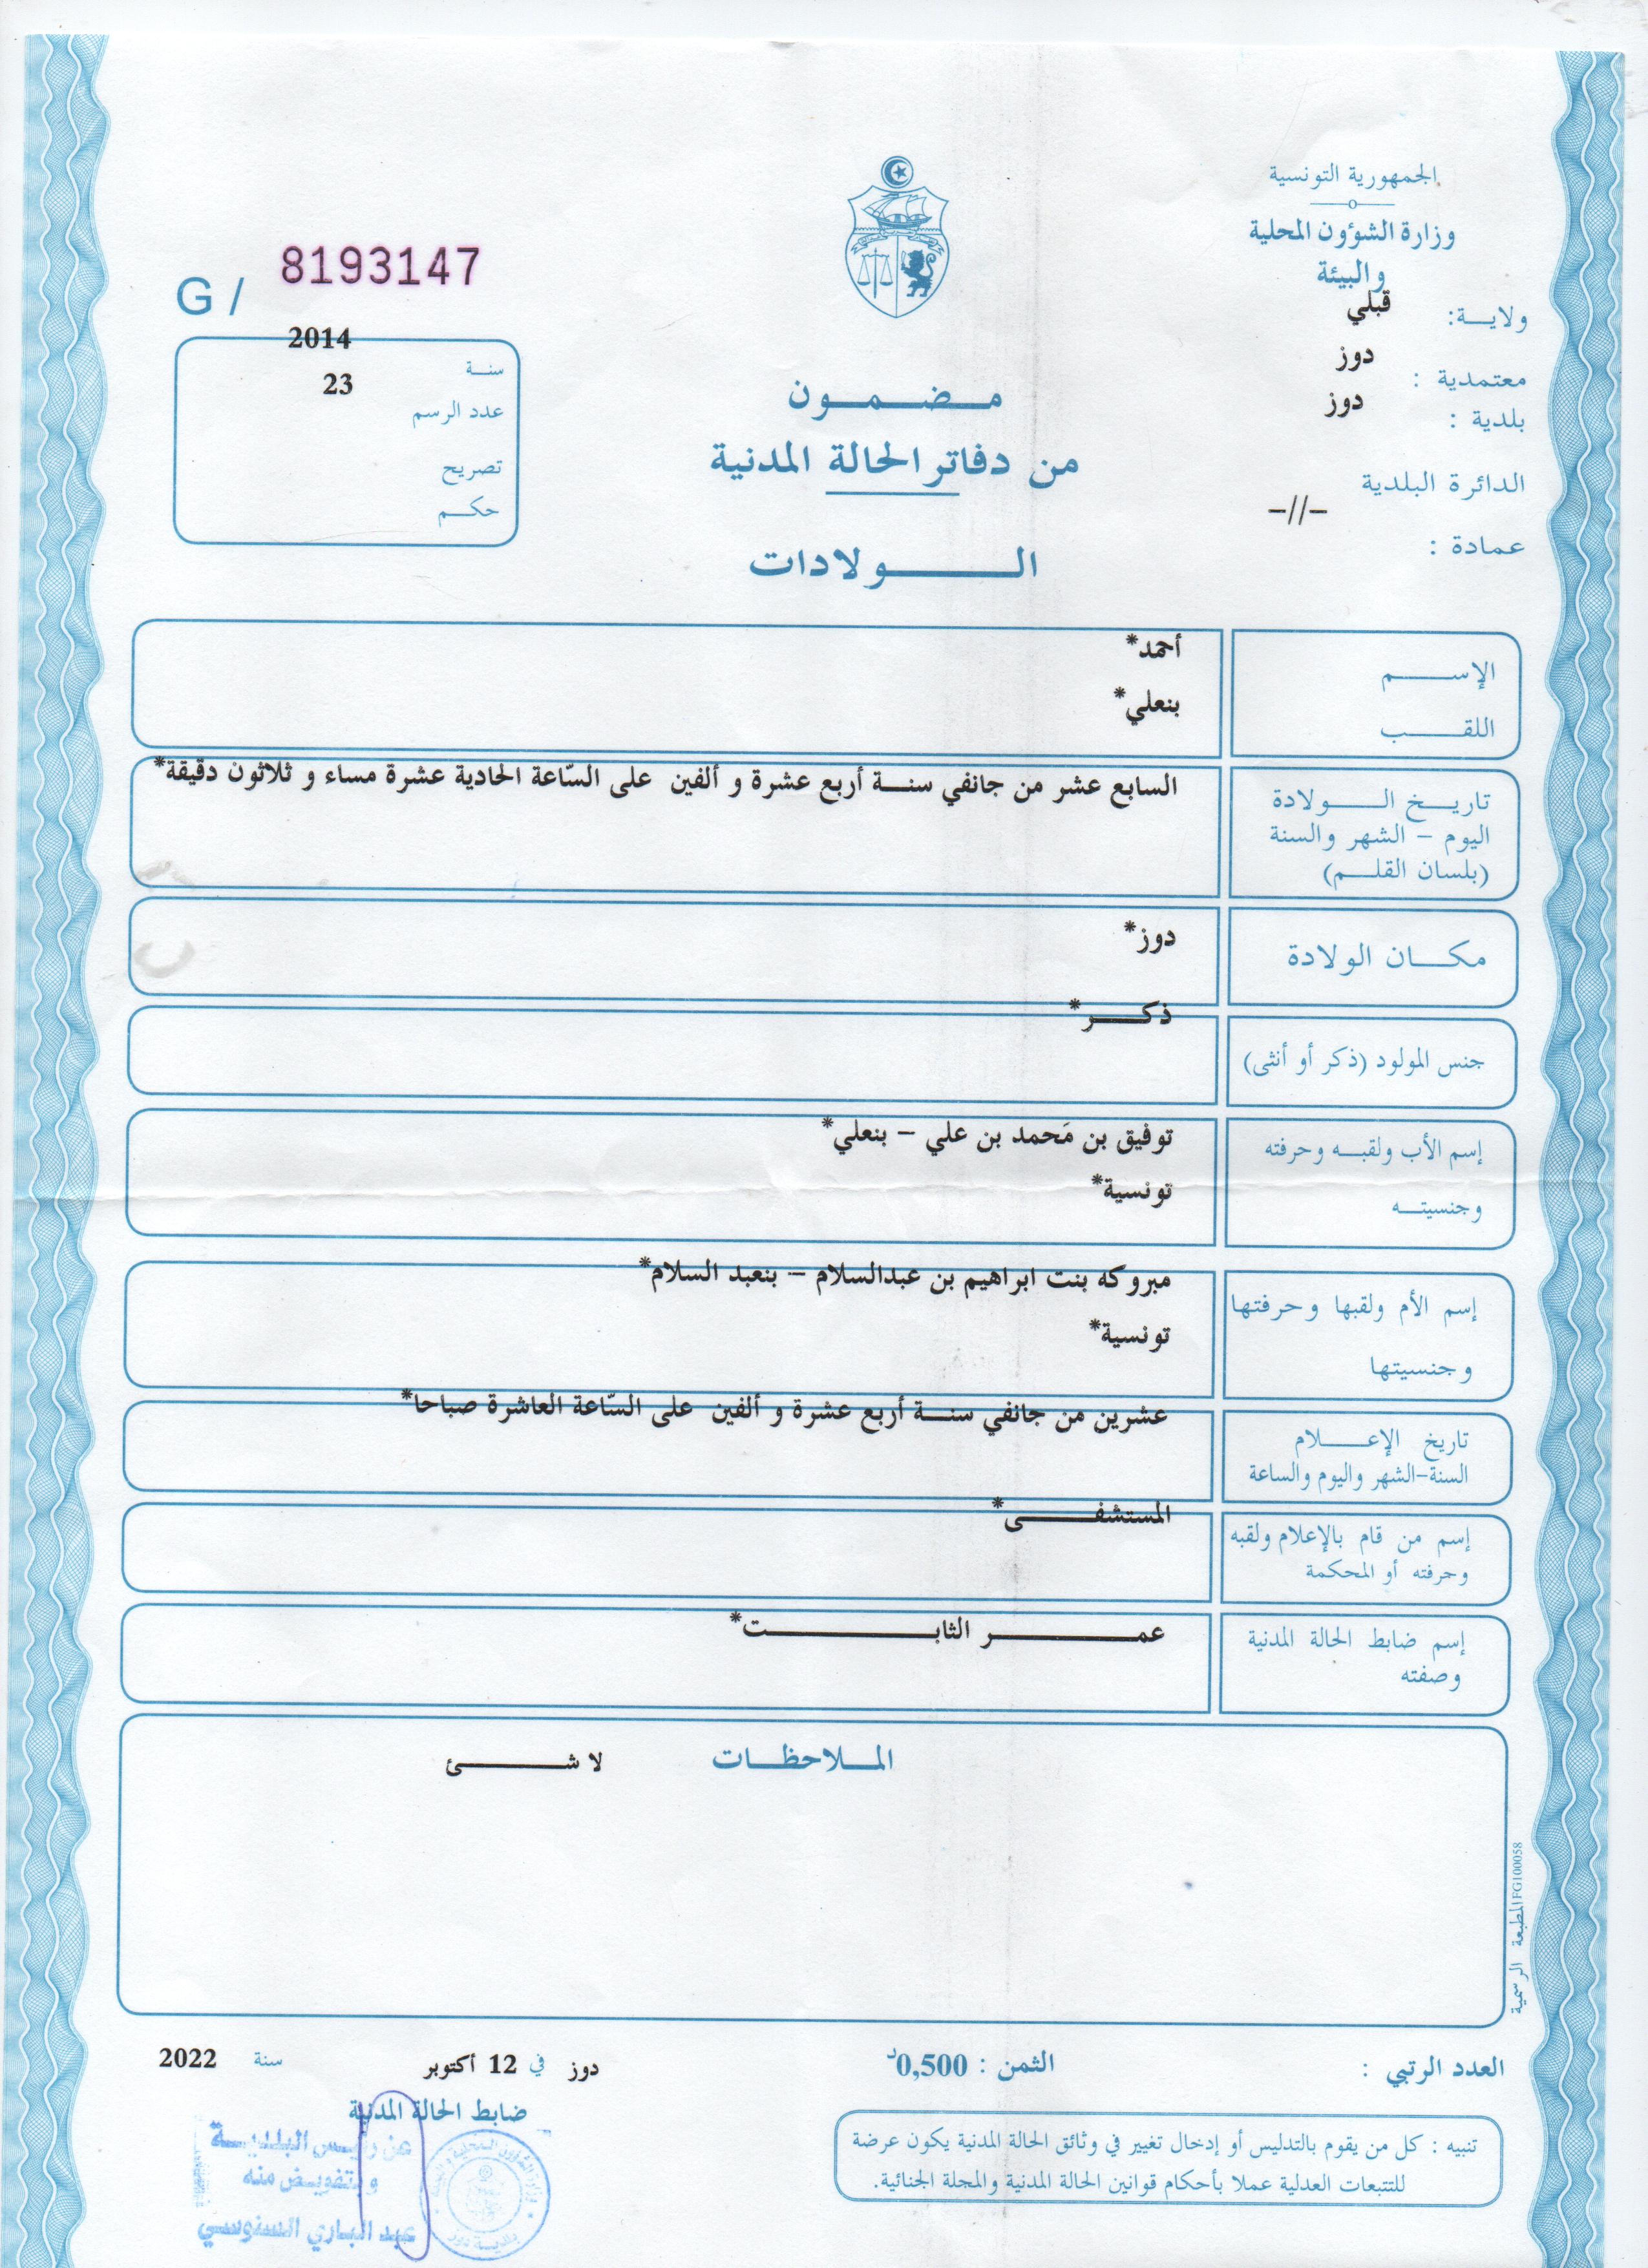 الجمهورية التونسية
وزارة الشؤون المحلية
والبيئة
ولايـــة: قبلي
معتمدية : دوز
بلدية : دوز
الدائرة البلدية
-//-
عمادة :
G / 8193147
سنـــة 2014
عدد الرسم 23
تصريح
حكـــم
مـــضـــمـــون
من دفاتر الحالة المدنية
الـــــولادات
الإســــــم أحمد*
اللقــــــب بنعلي*
تاريـــخ الـــــولادة السابع عشر من جانفي سنـــة أربع عشرة و ألفين على السّاعة الحادية عشرة مساء و ثلاثون دقيقة*
اليوم – الشهر والسنة
(بلسان القلـــم)
مكـــان الولادة دوز*
جنس المولود (ذكر أو أنثى) ذكـــــر*
إسم الأب ولقبـــه وحرفته توفيق بن مَحمد بن علي – بنعلي*
وجنسيتـــه تونسية*
إسم الأم ولقبها وحرفتها مبروكه بنت ابراهيم بن عبدالسلام – بنعبد السلام*
وجنسيتها تونسية*
تاريخ الإعـــــلام عشرين من جانفي سنـــة أربع عشرة و ألفين على السّاعة العاشرة صباحا*
السنة-الشهر واليوم والساعة
إسم من قام بالإعلام ولقبه المستشفـــــــى*
وحرفته أو المحكمة
إسم ضابط الحالة المدنية عمـــــــر الثابـــــــت*
وصفته
المـــلاحظـــات لا شـــــــئ
المطبعة الرسمية FG100058
العدد الرتبي :
الثمن : 0,500د
دوز في 12 أكتوبر سنة 2022
ضابط الحالة المدنية
عن رئيس البلديـــة
وبتفويض منه
عبد الباري السنوسي
بلدية دوز
تنبيه : كل من يقوم بالتدليس أو إدخال تغيير في وثائق الحالة المدنية يكون عرضة
للتتبعات العدلية عملا بأحكام قوانين الحالة المدنية والمجلة الجنائية.